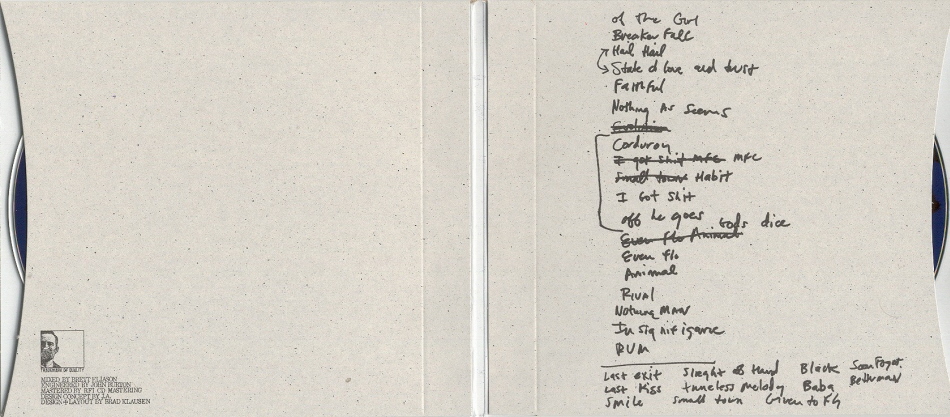 THOUSANDS OF QUALITY
MIXED BY BRETT ELIASON
ENGINEERED BY JOHN BURTON
MASTERED BY RFI CD MASTERING
DESIGN CONCEPT BY J.A.
DESIGN + LAYOUT BY BRAD KLAUSEN
of The Girl
Breaker Fall
Hail Hail
State of love and trust
Faithful
Nothing As Seems
Corduroy
I got shit MFC MFC
Small town Habit
I Got Shit
off he goes Gods dice
Even Flo Animal
Even Flo
Animal
RIVAL
Nothing MAN
Insignifigance
RVM
Last exit Slieght of Hand Black Soon Forget
Last Kiss tuneless Melody Baba Betterman
Smile small town Given to Fly